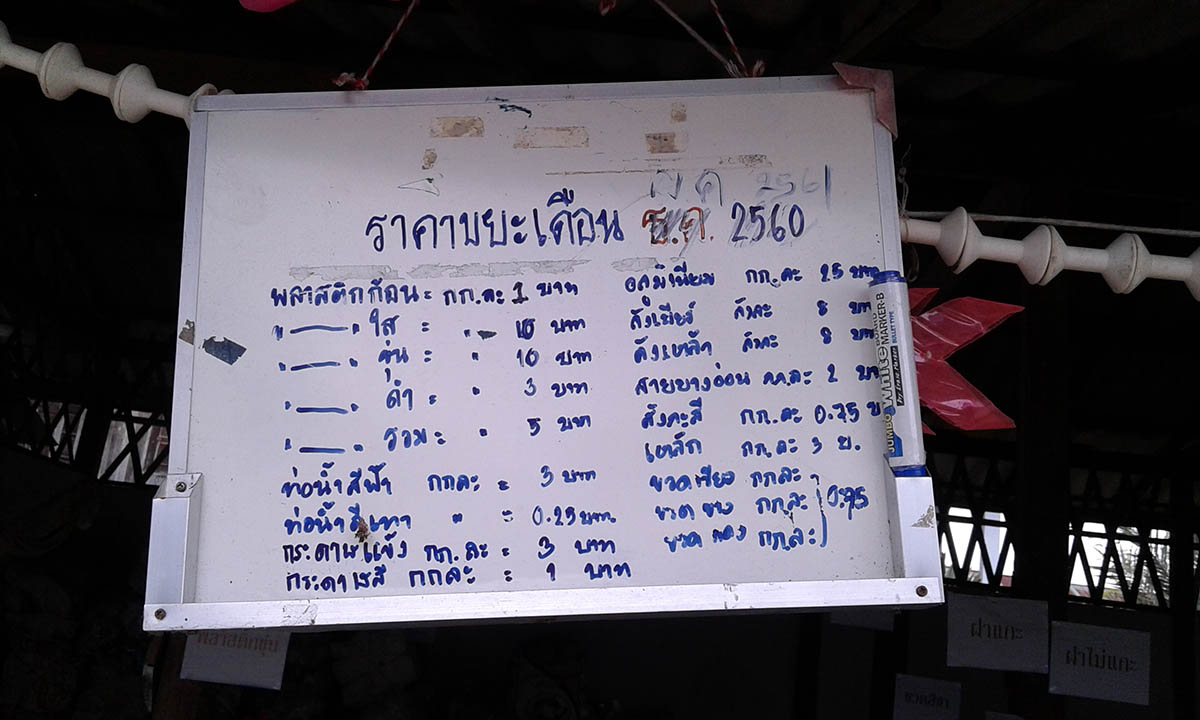 ค 2561
ราคาขยะเดือน ธ.ค. 2560
พลาสติกก้อน = กก.ละ 1 บาท
" —— " ใส = " 10 บาท
" —— " ขุ่น = " 10 บาท
" —— " ดำ = " 3 บาท
" —— " รวม = " 5 บาท
ท่อน้ำสีฟ้า กกละ = 3 บาท
ท่อน้ำสีเทา " = 0.25 บาท
กระดาษแข็ง กก.ละ = 3 บาท
กระดาษสี กกละ = 1 บาท
อลูมิเนียม กก.ละ 25 บาท
ลังเบียร์ ลังละ 8 บาท
ลังเหล้า ลังละ 8 บาท
สายยางอ่อน กก.ละ 2 บาท
สังกะสี กก.ละ 0.75 บ
เหล็ก กก.ละ 3 บ.
ขวดเขียว กกละ
ขวดขาว กกละ 0.75
ขวดแดง กก.ละ
JUMBO White BOARD MARKER-B
BULLET TYPE
พลาสติกขุ่น
ฝาแกะ
ฝาไม่แกะ